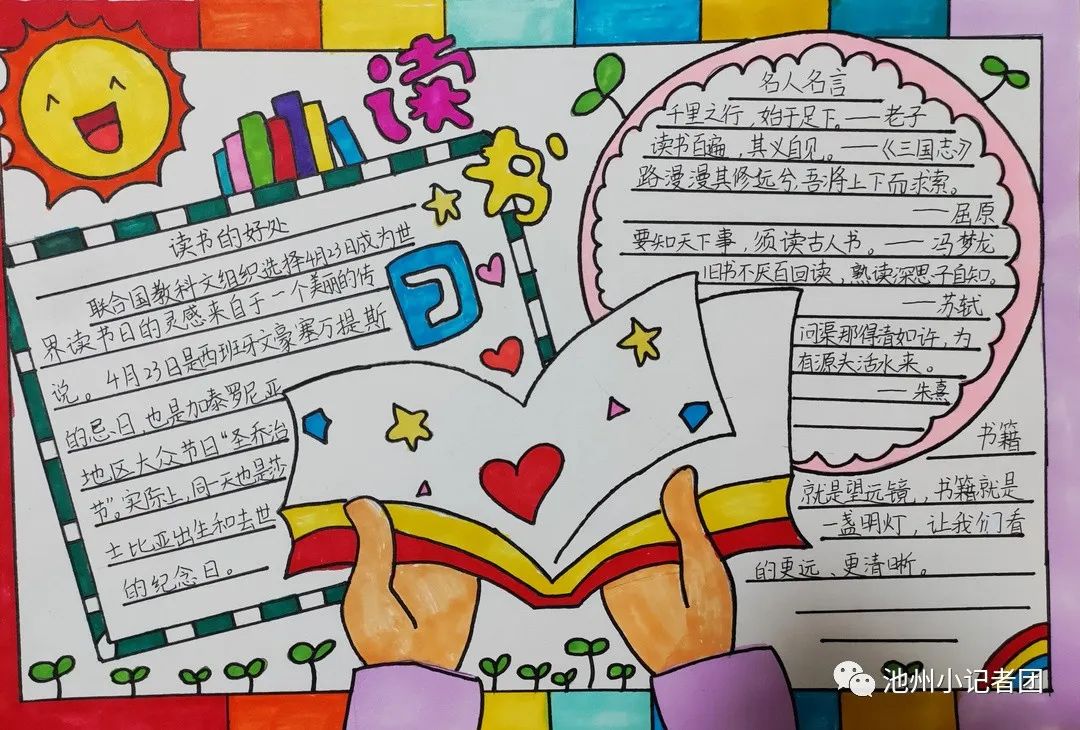 读书日
读书的好处
联合国教科文组织选择4月23日成为世
界读书日的灵感来自于一个美丽的传
说。4月23日是西班牙文豪塞万提斯
的忌日,也是加泰罗尼亚
地区大众节日“圣乔治
节”。实际上,同一天也是莎
士比亚出生和去世
的纪念日。
名人名言
千里之行,始于足下。——老子
读书百遍,其义自见。——《三国志》
路漫漫其修远兮,吾将上下而求索。
——屈原
要知天下事,须读古人书。——冯梦龙
旧书不厌百回读,熟读深思子自知。
——苏轼
问渠那得清如许,为
有源头活水来。
——朱熹
书籍
就是望远镜,书籍就是
一盏明灯,让我们看
的更远、更清晰。
池州小记者团